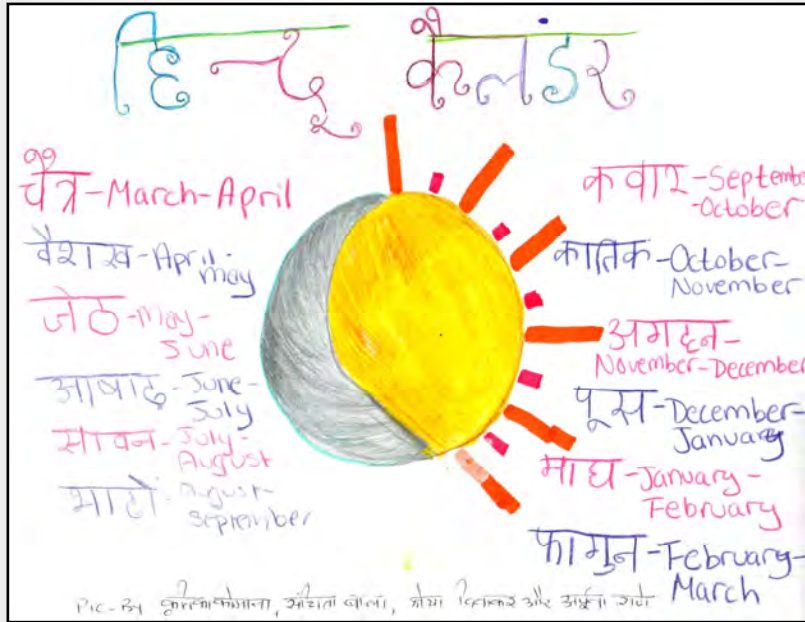 हिन्दू कैलंडर
चैत्र-March-April
वैशाख-April-
May
जेठ-May-
June
आषाढ-June-
July
सावन-July-
August
भादों-August-
September
कवार-Septembe
-October
कातिक-October-
November
अगहन-
November-December
पूस-December-
January
माघ-January-
February
फागुन-February-
March
Pic-By और